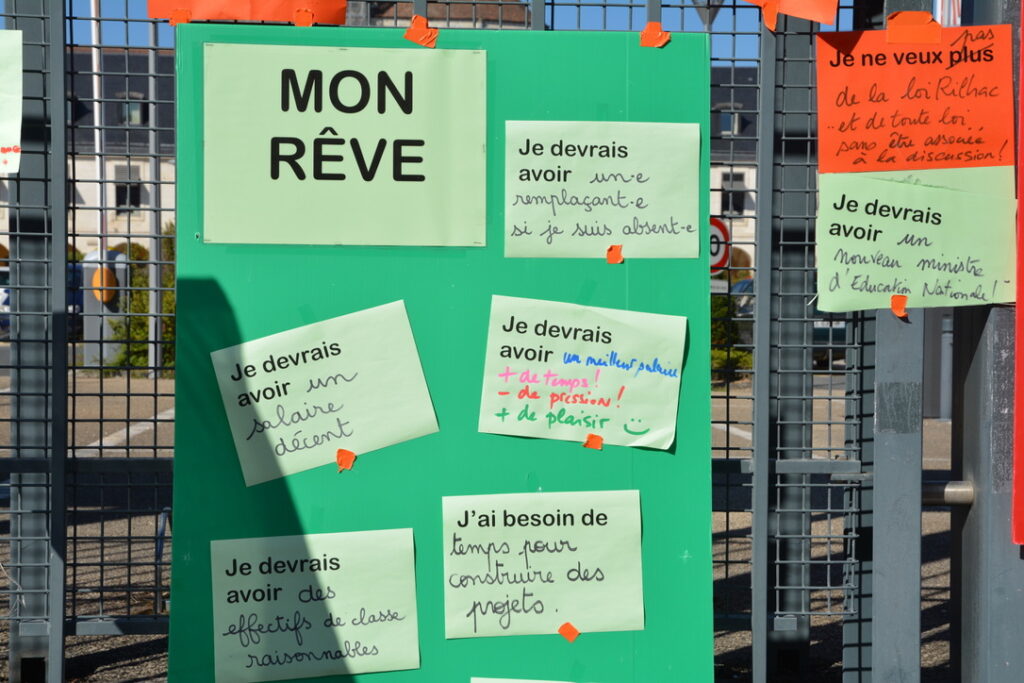 MON
RÊVE
Je devrais
avoir un·e
remplaçant·e
si je suis absent·e
Je devrais
avoir un
salaire
décent
Je devrais
avoir un meilleur salaire
+ de temps !
- de pression !
+ de plaisir
Je devrais
avoir des
effectifs de classe
raisonnables
J'ai besoin de
temps pour
construire des
projets.
pas
Je ne veux plus
de la loi Rilhac
et de toute loi
sans être associée
à la discussion !
Je devrais
avoir un
nouveau ministre
d'Education Nationale !
0